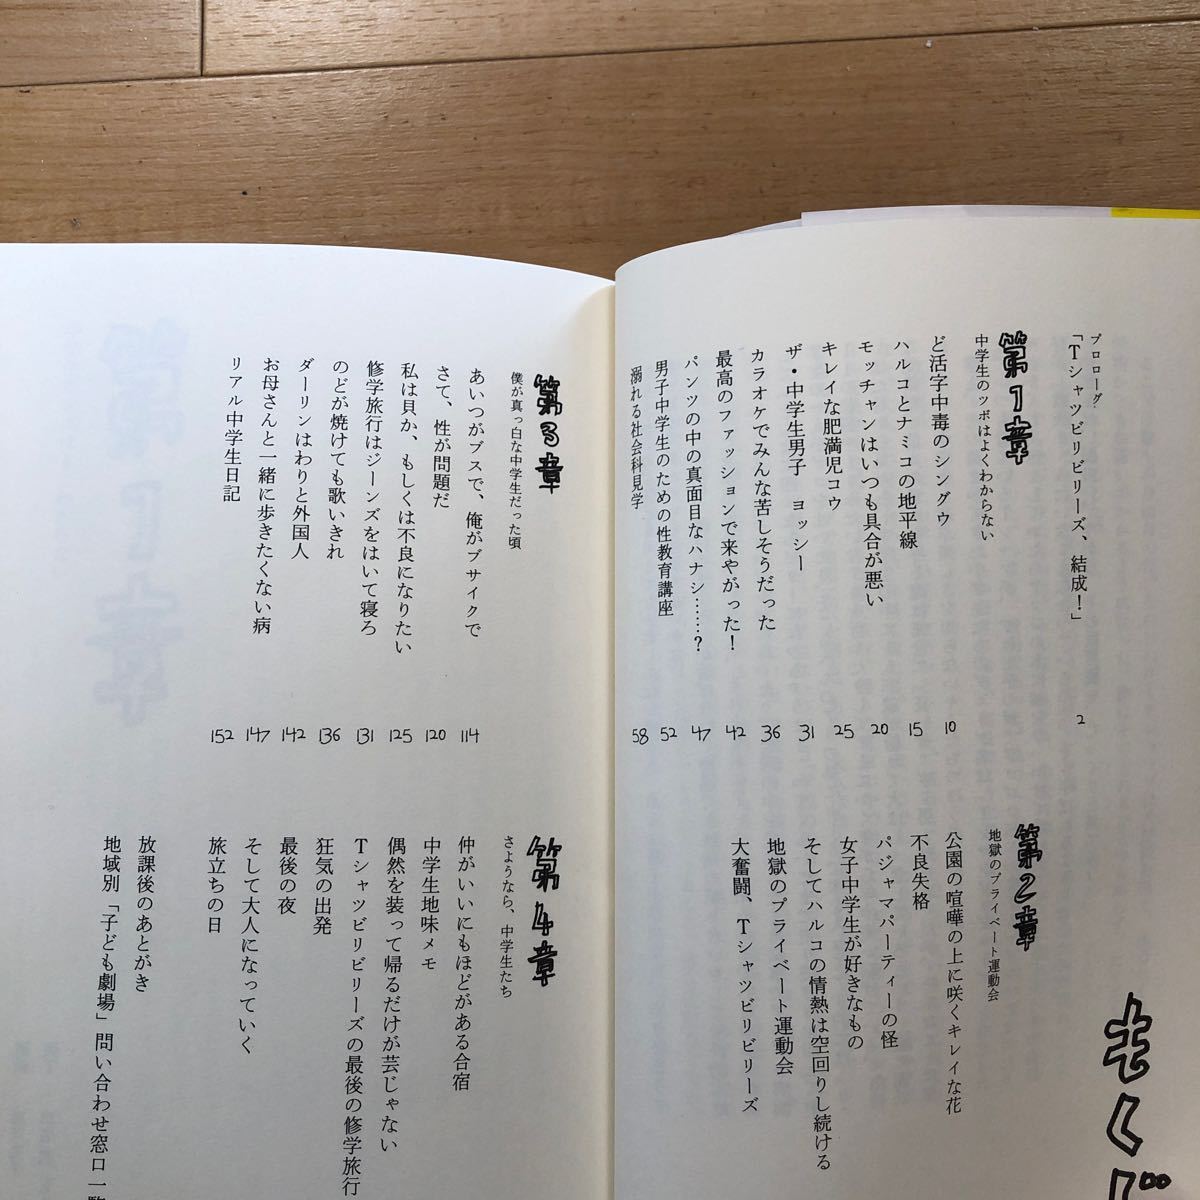 もく
プロローグ
「Tシャツビリビリーズ、結成！」 2
第1章
中学生のツボはよくわからない
ど活字中毒のシングウ 10
ハルコとナミコの地平線 15
モッチャンはいつも具合が悪い 20
キレイな肥満児コウ 25
ザ・中学生男子　ヨッシー 31
カラオケでみんな苦しそうだった 36
最高のファッションで来やがった！ 42
パンツの中の真面目なハナシ……？ 47
男子中学生のための性教育講座 52
溺れる社会科見学 58
第2章
地獄のプライベート運動会
公園の喧嘩の上に咲くキレイな花
不良失格
パジャマパーティーの怪
女子中学生が好きなもの
そしてハルコの情熱は空回りし続ける
地獄のプライベート運動会
大奮闘、Tシャツビリビリーズ
第3章
僕が真っ白な中学生だった頃
あいつがブスで、俺がブサイクで 114
さて、性が問題だ 120
私は貝か、もしくは不良になりたい 125
修学旅行はジーンズをはいて寝ろ 131
のどが焼けても歌いきれ 136
ダーリンはわりと外国人 142
お母さんと一緒に歩きたくない病 147
リアル中学生日記 152
第4章
さようなら、中学生たち
仲がいいにもほどがある合宿
中学生地味メモ
偶然を装って帰るだけが芸じゃない
Tシャツビリビリーズの最後の修学旅行
狂気の出発
最後の夜
そして大人になっていく
旅立ちの日
放課後のあとがき
地域別「子ども劇場」問い合わせ窓口一覧